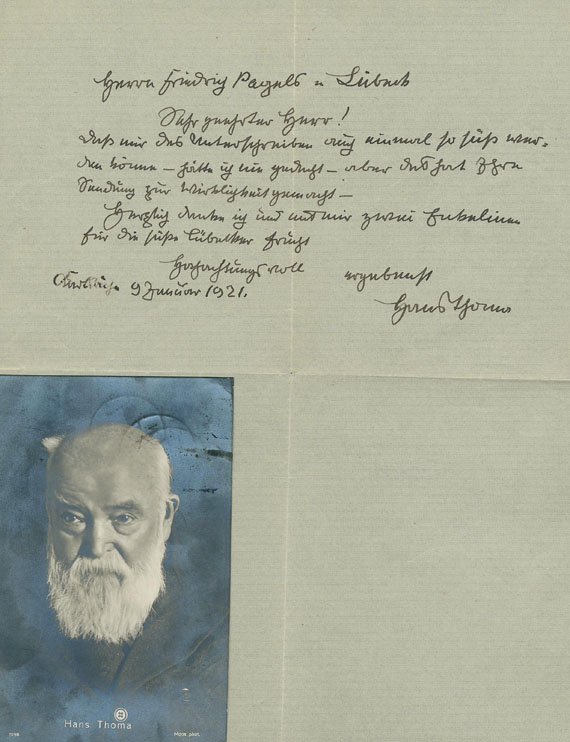 Herrn Friedrich Pagels in Lübeck
Sehr geehrter Herr!
Daß mir das Unterschreiben auch einmal so süß wer-
den könne – hätte ich nie gedacht – aber das hat Ihre
Sendung zur Wirklichkeit gemacht –
Herzlich danke ich und mit mir zwei Enkelinnen
für die süße Lübecker Frucht
Hochachtungsvoll ergebenst
Karlsruhe 9 Januar 1921.
Hans Thoma
Hans Thoma
phot.